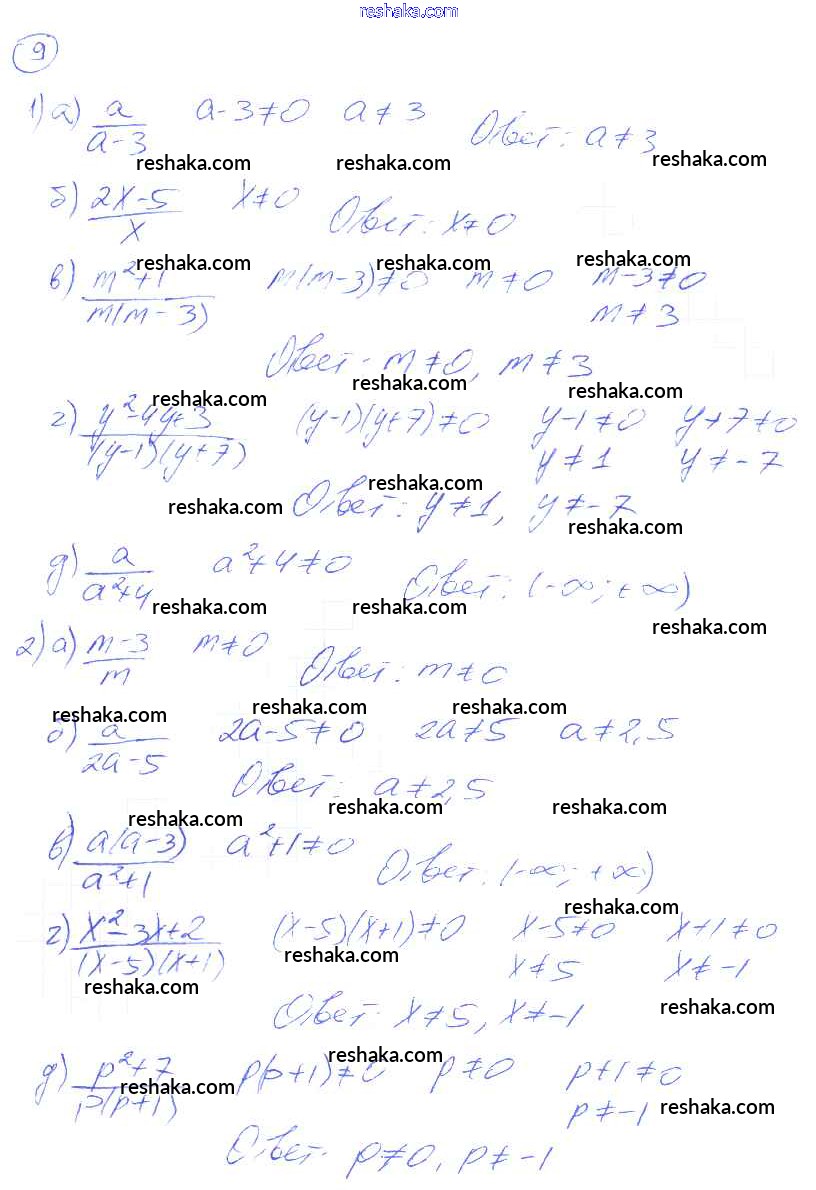 reshaka.com
9
1) а) a/(a-3) a-3≠0 a≠3 Ответ: a≠3
reshaka.com reshaka.com reshaka.com
б) (2x-5)/x x≠0 Ответ: x≠0
reshaka.com reshaka.com reshaka.com
в) (m²+1)/(m(m-3)) m(m-3)≠0 m≠0 m-3≠0
m≠3
Ответ: m≠0, m≠3
reshaka.com reshaka.com reshaka.com
г) (y²-4y+3)/((y-1)(y+7)) (y-1)(y+7)≠0 y-1≠0 y+7≠0
y≠1 y≠-7
reshaka.com
reshaka.com Ответ: y≠1, y≠-7
reshaka.com
д) a/(a²+4) a²+4≠0 Ответ: (-∞; +∞)
reshaka.com reshaka.com reshaka.com
2) а) (m-3)/m m≠0 Ответ: m≠0
reshaka.com reshaka.com reshaka.com
б) a/(2a-5) 2a-5≠0 2a≠5 a≠2,5
Ответ: a≠2,5
reshaka.com reshaka.com reshaka.com
в) a(a-3)/(a²+1) a²+1≠0 Ответ: (-∞; +∞)
reshaka.com
г) (x²-3x+2)/((x-5)(x+1)) (x-5)(x+1)≠0 x-5≠0 x+1≠0
reshaka.com x≠5 x≠-1
reshaka.com reshaka.com
Ответ: x≠5, x≠-1
reshaka.com
д) (p²+7)/(p(p+1)) p(p+1)≠0 p≠0 p+1≠0
reshaka.com reshaka.com
p≠-1
Ответ: p≠0, p≠-1